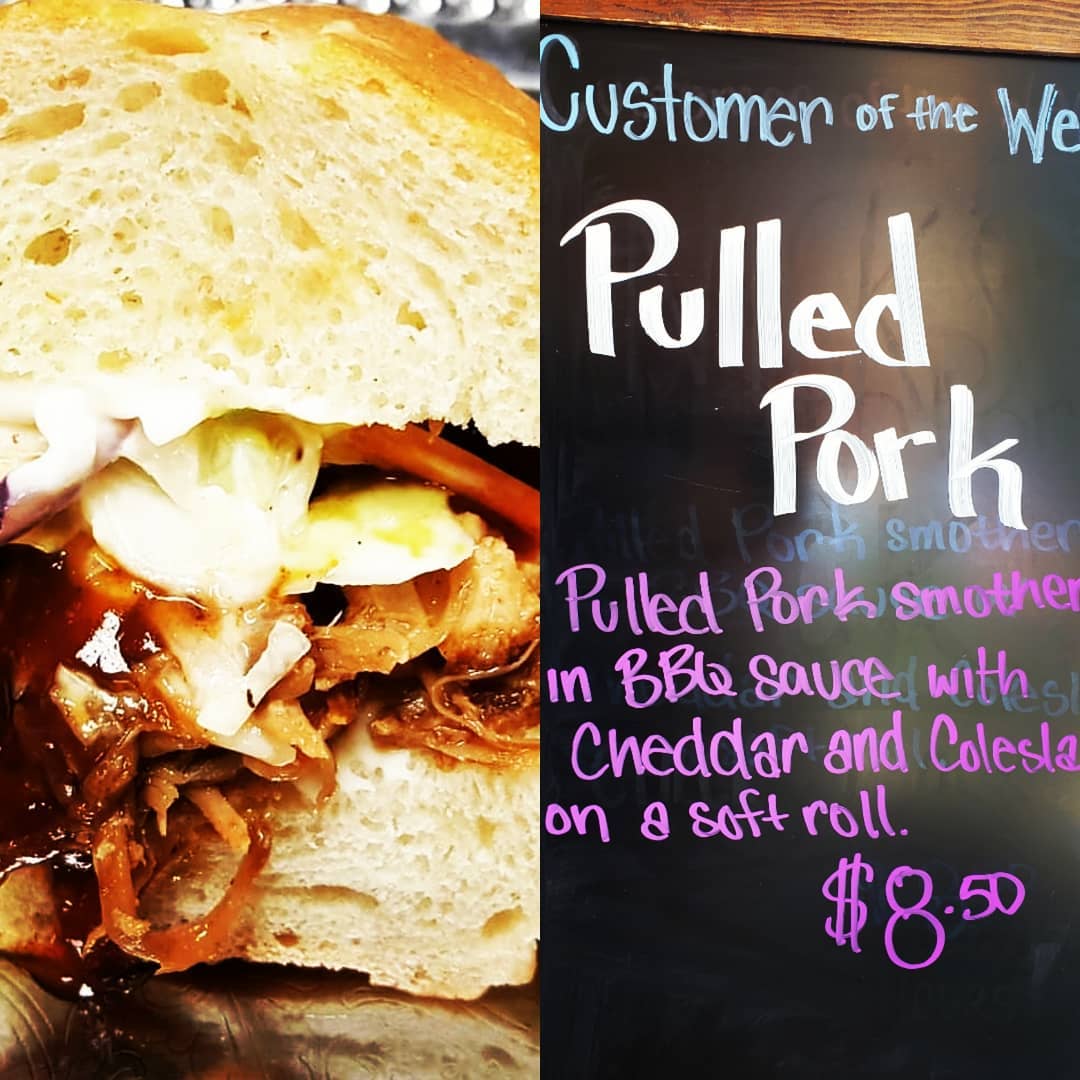 Customer of the We
Pulled
Pork
Pulled Pork smother
in BBQ sauce with
Cheddar and Colesla
on a soft roll.
$8.50